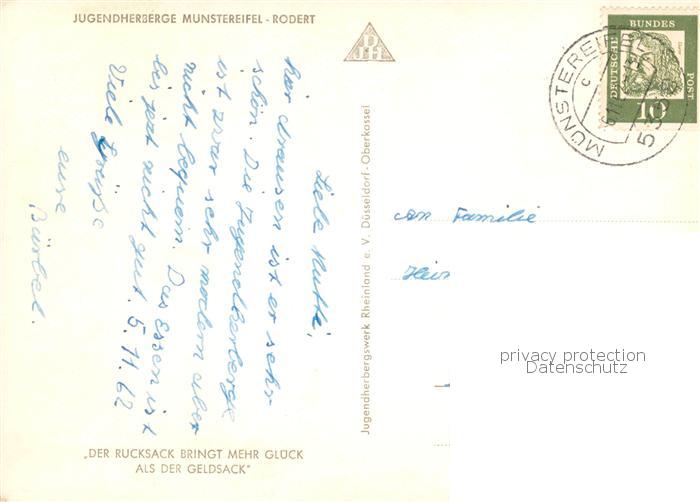 JUGENDHERBERGE MÜNSTEREIFEL - RODERT
Liebe Mutti,
hier draussen ist er sehr
schön. Die Jugendherberge
ist zwar sehr modern aber
nicht bequem. Das Essen ist
bis jetzt nicht gut. 5.11.62
Viele Grüße
eure
Bärbel.
„DER RUCKSACK BRINGT MEHR GLÜCK
ALS DER GELDSACK"
Jugendherbergswerk Rheinland e. V. Düsseldorf-Oberkassel
DEUTSCHE
BUNDES
POST
10
MÜNSTEREIFEL
c
An Familie
privacy protection
Datenschutz